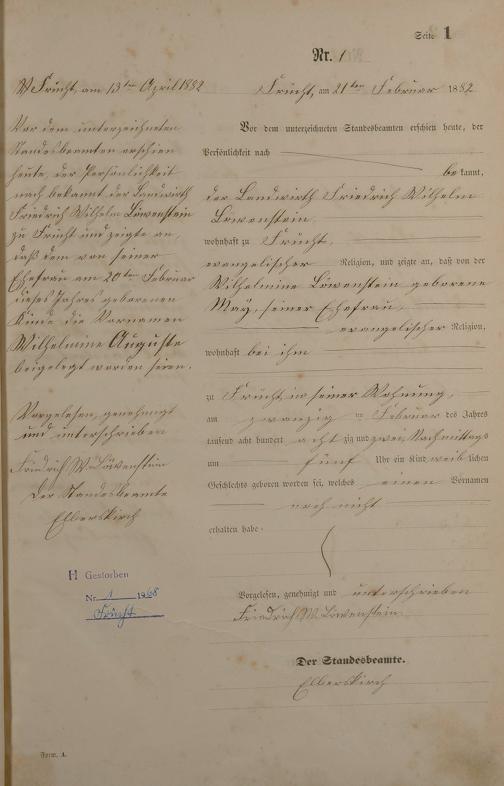 Seite 1
Nr. 1
Frücht, am 13ten April 1882
Vor dem unterzeichneten
Standesbeamten erschien
heute, der Persönlichkeit
nach bekannt, der Landwirth
Friedrich Wilhelm Löwenstein
zu Frücht und zeigte an,
daß dem von seiner
Ehefrau am 20ten Februar
dieses Jahres geborenen
Kinde die Vornamen
Wilhelmine Auguste
beigelegt worden seien.
Vorgelesen, genehmigt
und unterschrieben
Friedrich W. Löwenstein
Der Standesbeamte
Elberskirch
H Gestorben
Nr. 1 1968
Frücht
Frücht, am 21ten Februar 1882
Vor dem unterzeichneten Standesbeamten erschien heute, der
Persönlichkeit nach
bekannt,
der Landwirth Friedrich Wilhelm
Löwenstein,
wohnhaft zu Frücht,
evangelischer Religion, und zeigte an, daß von der
Wilhelmine Löwenstein geborene
May, seiner Ehefrau,
evangelischer Religion,
wohnhaft bei ihm
zu Frücht, in seiner Wohnung,
am zwanzig ten Februar des Jahres
tausend acht hundert acht zig und zwei, Nachmittags
um fünf Uhr ein Kind weiblichen
Geschlechts geboren worden sei, welches einen Vornamen
noch nicht
erhalten habe.
Vorgelesen, genehmigt und unterschrieben
Friedrich W. Löwenstein
Der Standesbeamte.
Elberskirch
Form. A.